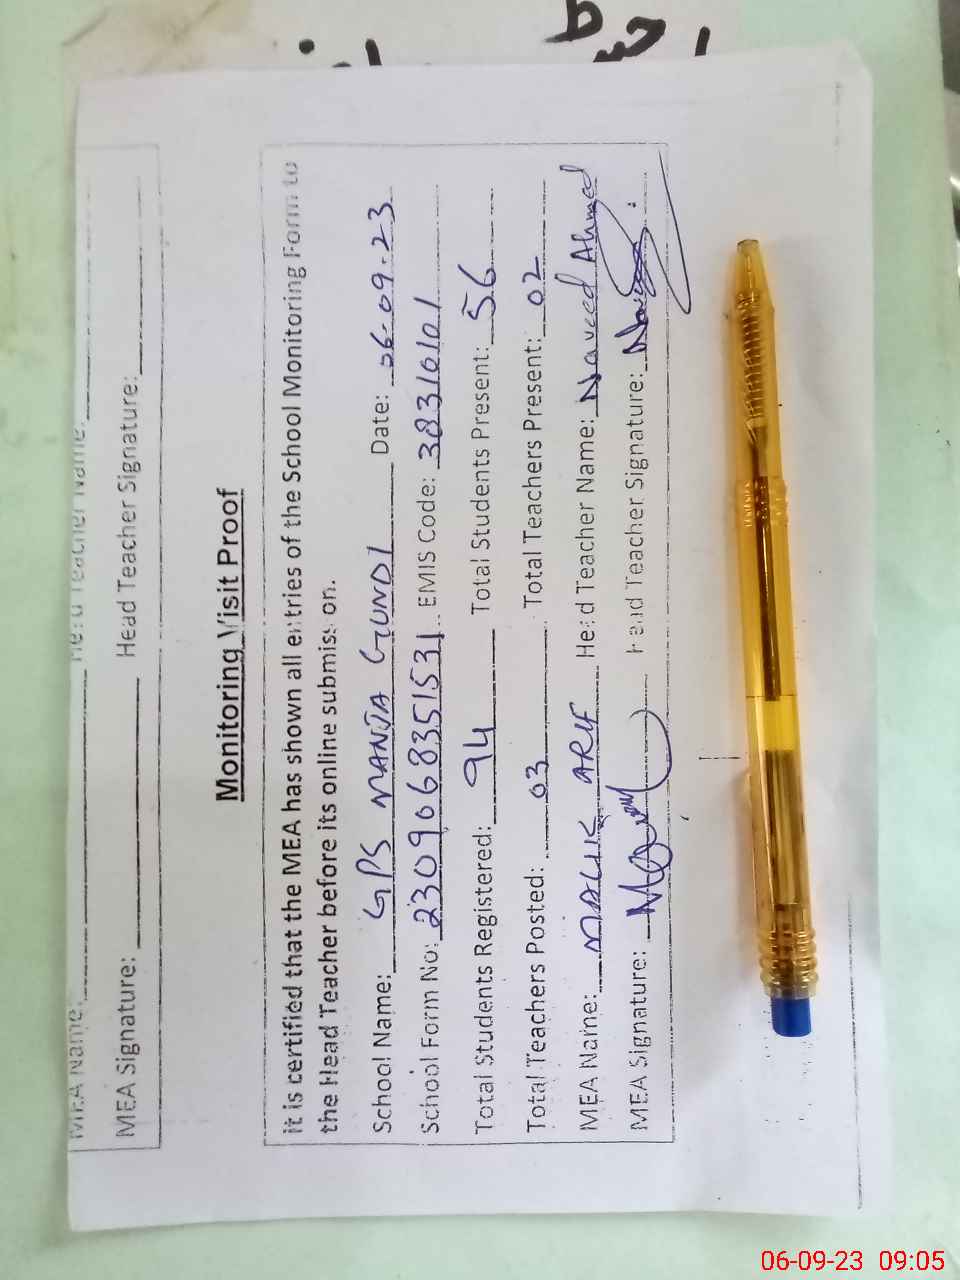 MEA Name: Head Teacher Name:
MEA Signature: Head Teacher Signature:
Monitoring Visit Proof
It is certified that the MEA has shown all entries of the School Monitoring Form to
the Head Teacher before its online submission.
School Name: GPS MANJA GUNDI Date: 06-09-23
School Form No: 2309068351531 EMIS Code: 38310101
Total Students Registered: 94 Total Students Present: 56
Total Teachers Posted: 03 Total Teachers Present: 02
MEA Name: MALIK ARIF Head Teacher Name: Naveed Ahmed
MEA Signature: Head Teacher Signature:
06-09-23 09:05